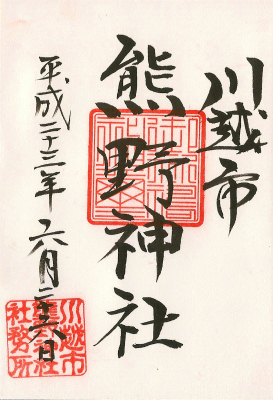 川越市
熊野神社
平成二十三年六月二十六日
川越市
熊野神社
社務所